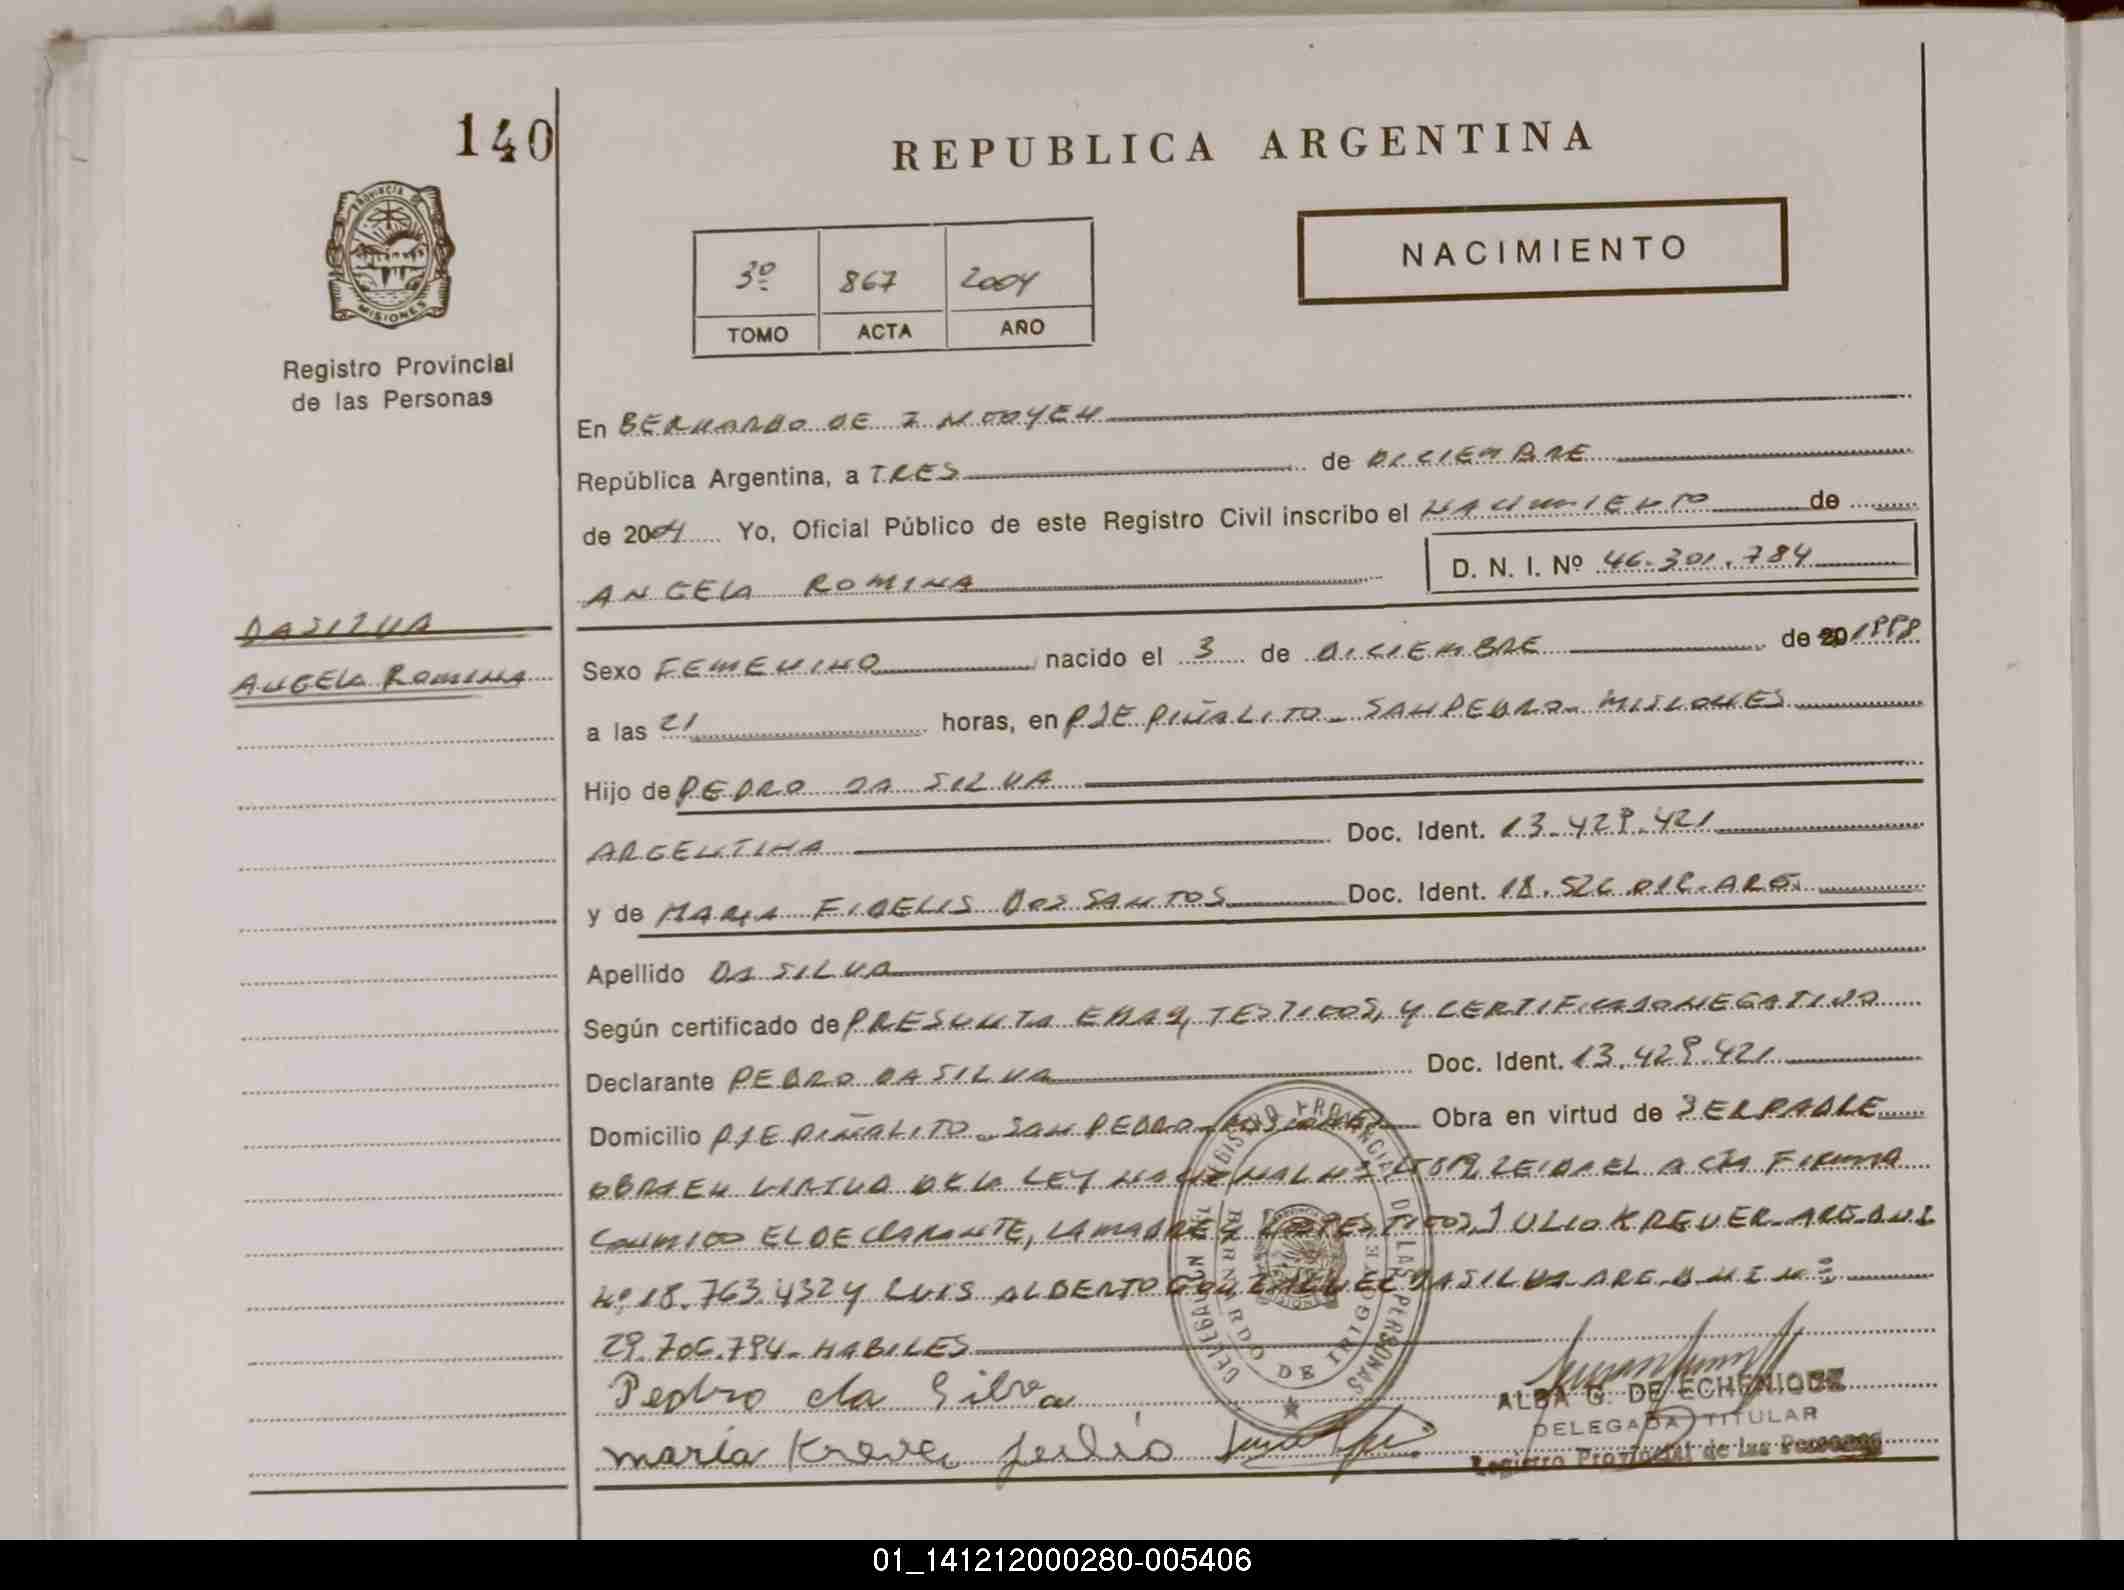 140
REPUBLICA ARGENTINA
PROVINCIA DE
MISIONES
Registro Provincial
de las Personas
NACIMIENTO
3º 867 2004
TOMO ACTA AÑO
En BERNARDO DE IRIGOYEN
República Argentina, a TRES de DICIEMBRE
de 2004 Yo, Oficial Público de este Registro Civil inscribo el NACIMIENTO de
ANGELA ROMINA D. N. I. Nº 46.301.784
DA SILVA
ANGELA ROMINA
Sexo FEMENINO nacido el 3 de DICIEMBRE de 20 1998
a las 21 horas, en PJE PIÑALITO - SAN PEDRO - MISIONES
Hijo de PEDRO DA SILVA
ARGENTINA Doc. Ident. 13.429.421
y de MARIA FIDELIS DOS SANTOS Doc. Ident. 18. ARG.
Apellido DA SILVA
Según certificado de PRESUNTA EDAD, TESTIGOS, Y CERTIFICADO NEGATIVO
Declarante PEDRO DA SILVA Doc. Ident. 13.429.421
Domicilio PJE PIÑALITO - SAN PEDRO - MISIONES Obra en virtud de SER PADRE
OBRA EN VIRTUD DE LA LEY NACIONAL Nº LEIDA EL ACTA FIRMA
CONMIGO EL DECLARANTE, LA MADRE Y LOS TESTIGOS, JULIO KREVER - ARG. D.N.I.
Nº 18.763.432 Y LUIS ALBERTO DA SILVA ARG. D.N.I. Nº
29.706.794 - HABILES
Pedro da Silva
maria Krever Julio
REGISTRO PROVINCIAL DE LAS PERSONAS
DELEGACION
BERNARDO DE IRIGOYEN
ALBA G. DE ECHENIQUE
DELEGADA TITULAR
Registro Provincial de las Personas
01_141212000280-005406